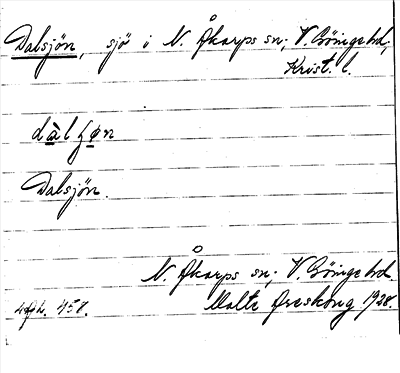 Dalsjön, sjö i N. Åkarps sn; V. Göinge hd,
Krist. l.
Dalsjön.
N. Åkarps sn; V. Göinge hd.
Malte Areskoug 1928.